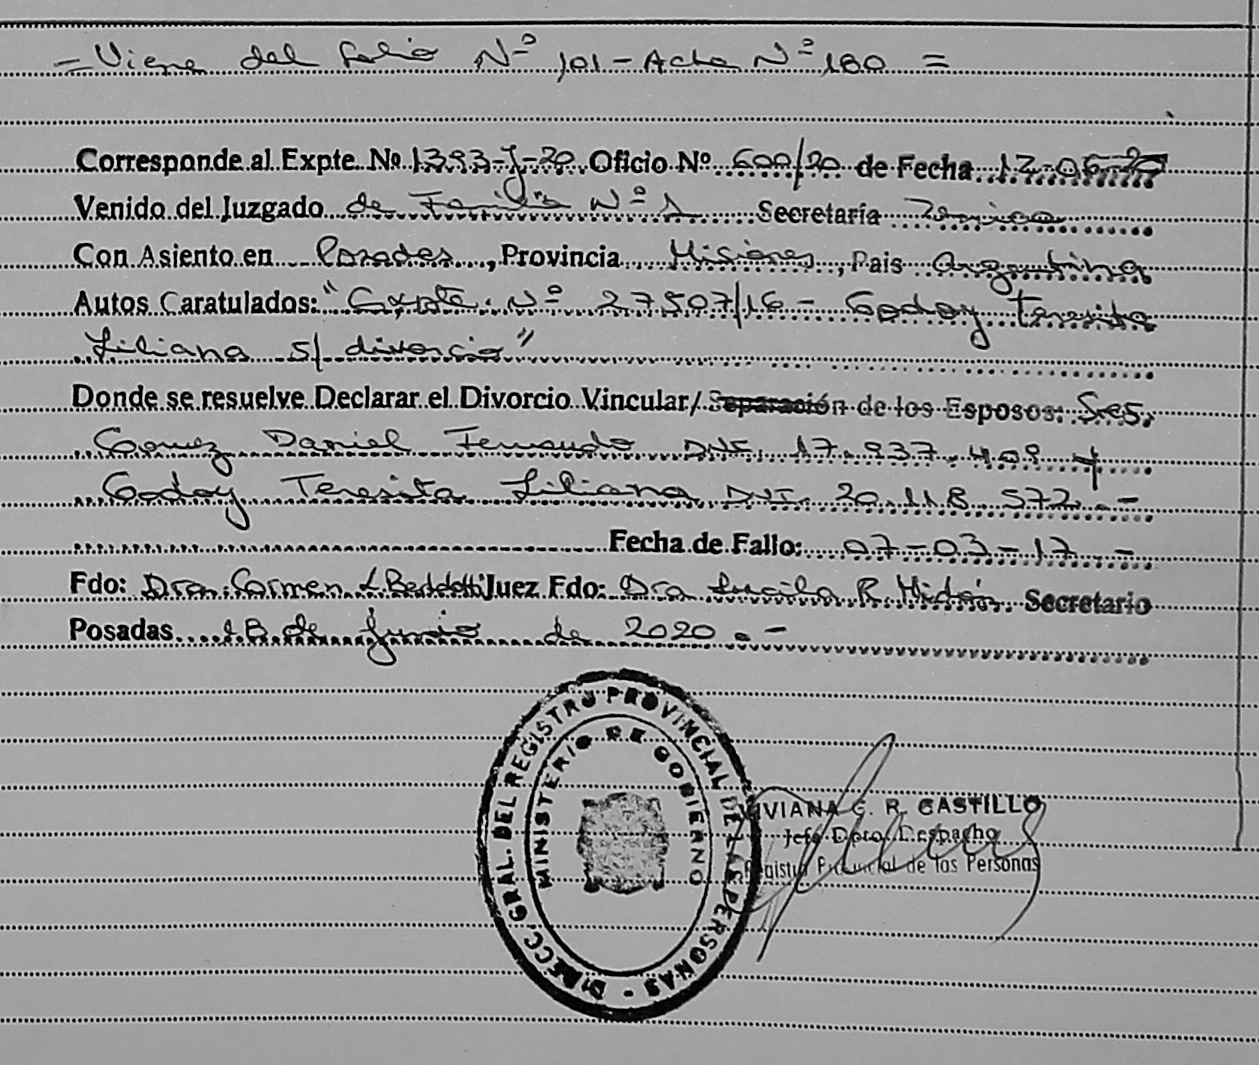 = Viene del folio Nº 101 - Acta Nº 180 =
Corresponde al Expte. Nº 1393-J-20 Oficio Nº 600/20 de Fecha 12-06-20
Venido del Juzgado de Familia Nº 1 Secretaría Única
Con Asiento en Posadas, Provincia Misiones, Pais Argentina
Autos Caratulados: "Expte. Nº 27507/16 - Godoy Teresita
Liliana s/ divorcio"
Donde se resuelve Declarar el Divorcio Vincular/ Separación de los Esposos: Sres.
Gomez Daniel Fernando DNI. 17.937.408 y
Godoy Teresita Liliana DNI. 20.118.572.-
Fecha de Fallo: 07-03-17.-
Fdo: Dra. Carmen Juez Fdo: Dra Lucila R. Midón Secretario
Posadas 18 de junio de 2020.-
DIRECC. GRAL. DEL REGISTRO PROVINCIAL DE LAS PERSONAS -
MINISTERIO DE GOBIERNO
VIVIANA G. R. CASTILLO
Jefe Dpto. Despacho
Registro Provincial de las Personas